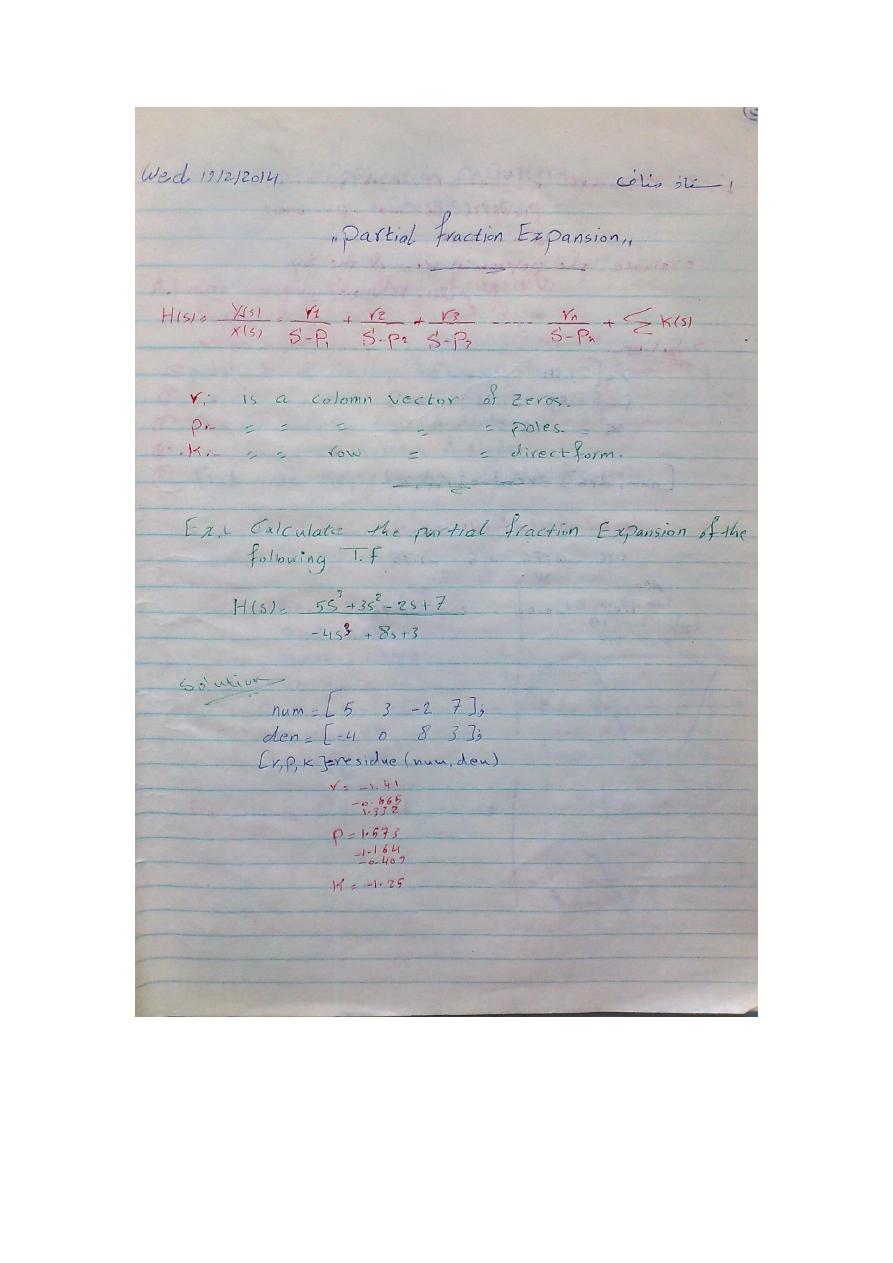 Wed 19/2/2014 استاذ مناف
"Partial fraction Expansion"
H(s) = Y(s)/X(s) = r1/(S-P1) + r2/(S-P2) + r3/(S-P3) ...... rn/(S-Pn) + Σ K(s)
r:- is a colomn vector of zeros.
P:- = = = = = poles.
K:- = = row = = directform.
Ex.1 Calculate the partial fraction Expansion of the
following T.f
H(s) = (5s³+3s²-2s+7)/(-4s³+8s+3)
Solution
num = [5 3 -2 7];
den = [-4 0 8 3];
[r,p,k]=residue(num,den)
r = -1.41
-0.665
1.332
P = 1.573
-1.164
-0.409
K = -1.25